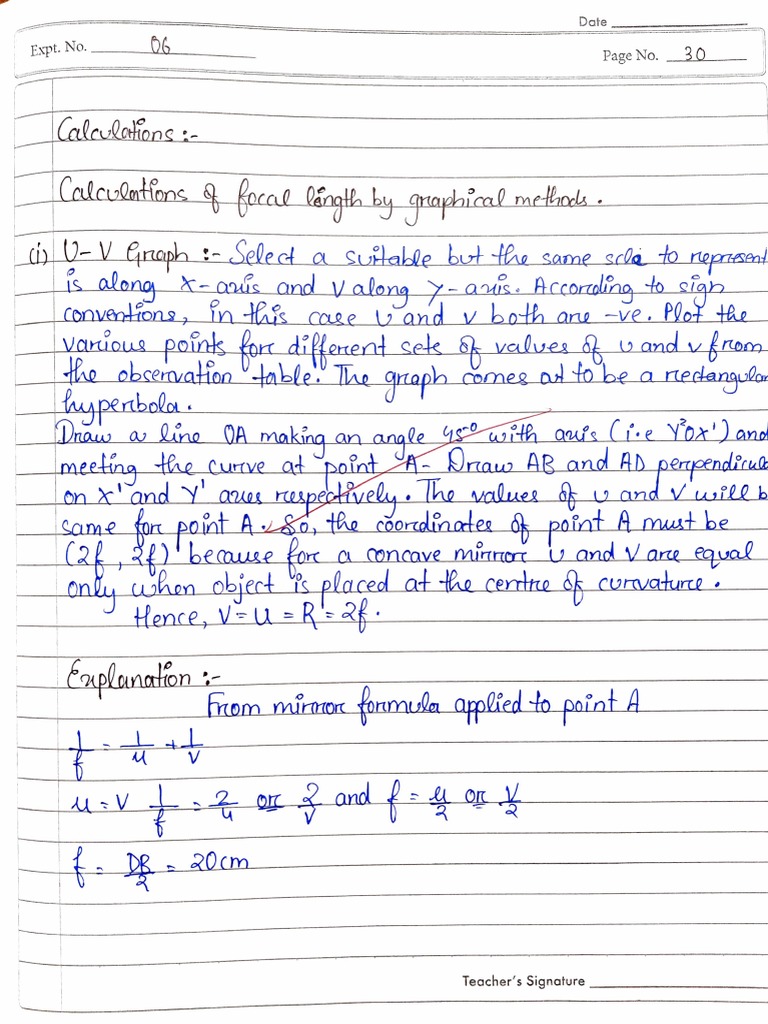 Date
Expt. No. 06
Page No. 30
Calculations :-
Calculations of focal length by graphical methods.
(i) U-V Graph :- Select a suitable but the same scle to represent
is along X-axis and V along Y-axis. According to sign
conventions, in this case u and v both are -ve. Plot the
various points for different sets of values of u and v from
the observation table. The graph comes at to be a rectangular
hyperbola.
Draw a line OA making an angle 45° with axis (i.e Y'OX') and
meeting the curve at point A- Draw AB and AD perpendicul
on X' and Y' axes respectively. The values of u and v will b
same for point A. So, the coordinates of point A must be
(2f, 2f) because for a concave mirror u and v are equal
only when object is placed at the centre of curvature.
Hence, V = U = R = 2f.
Explanation :-
From mirror formula applied to point A
1/f = 1/u + 1/v
u = v 1/f = 2/u or 2/v and f = u/2 or v/2
f = DB/2 = 20cm
Teacher's Signature